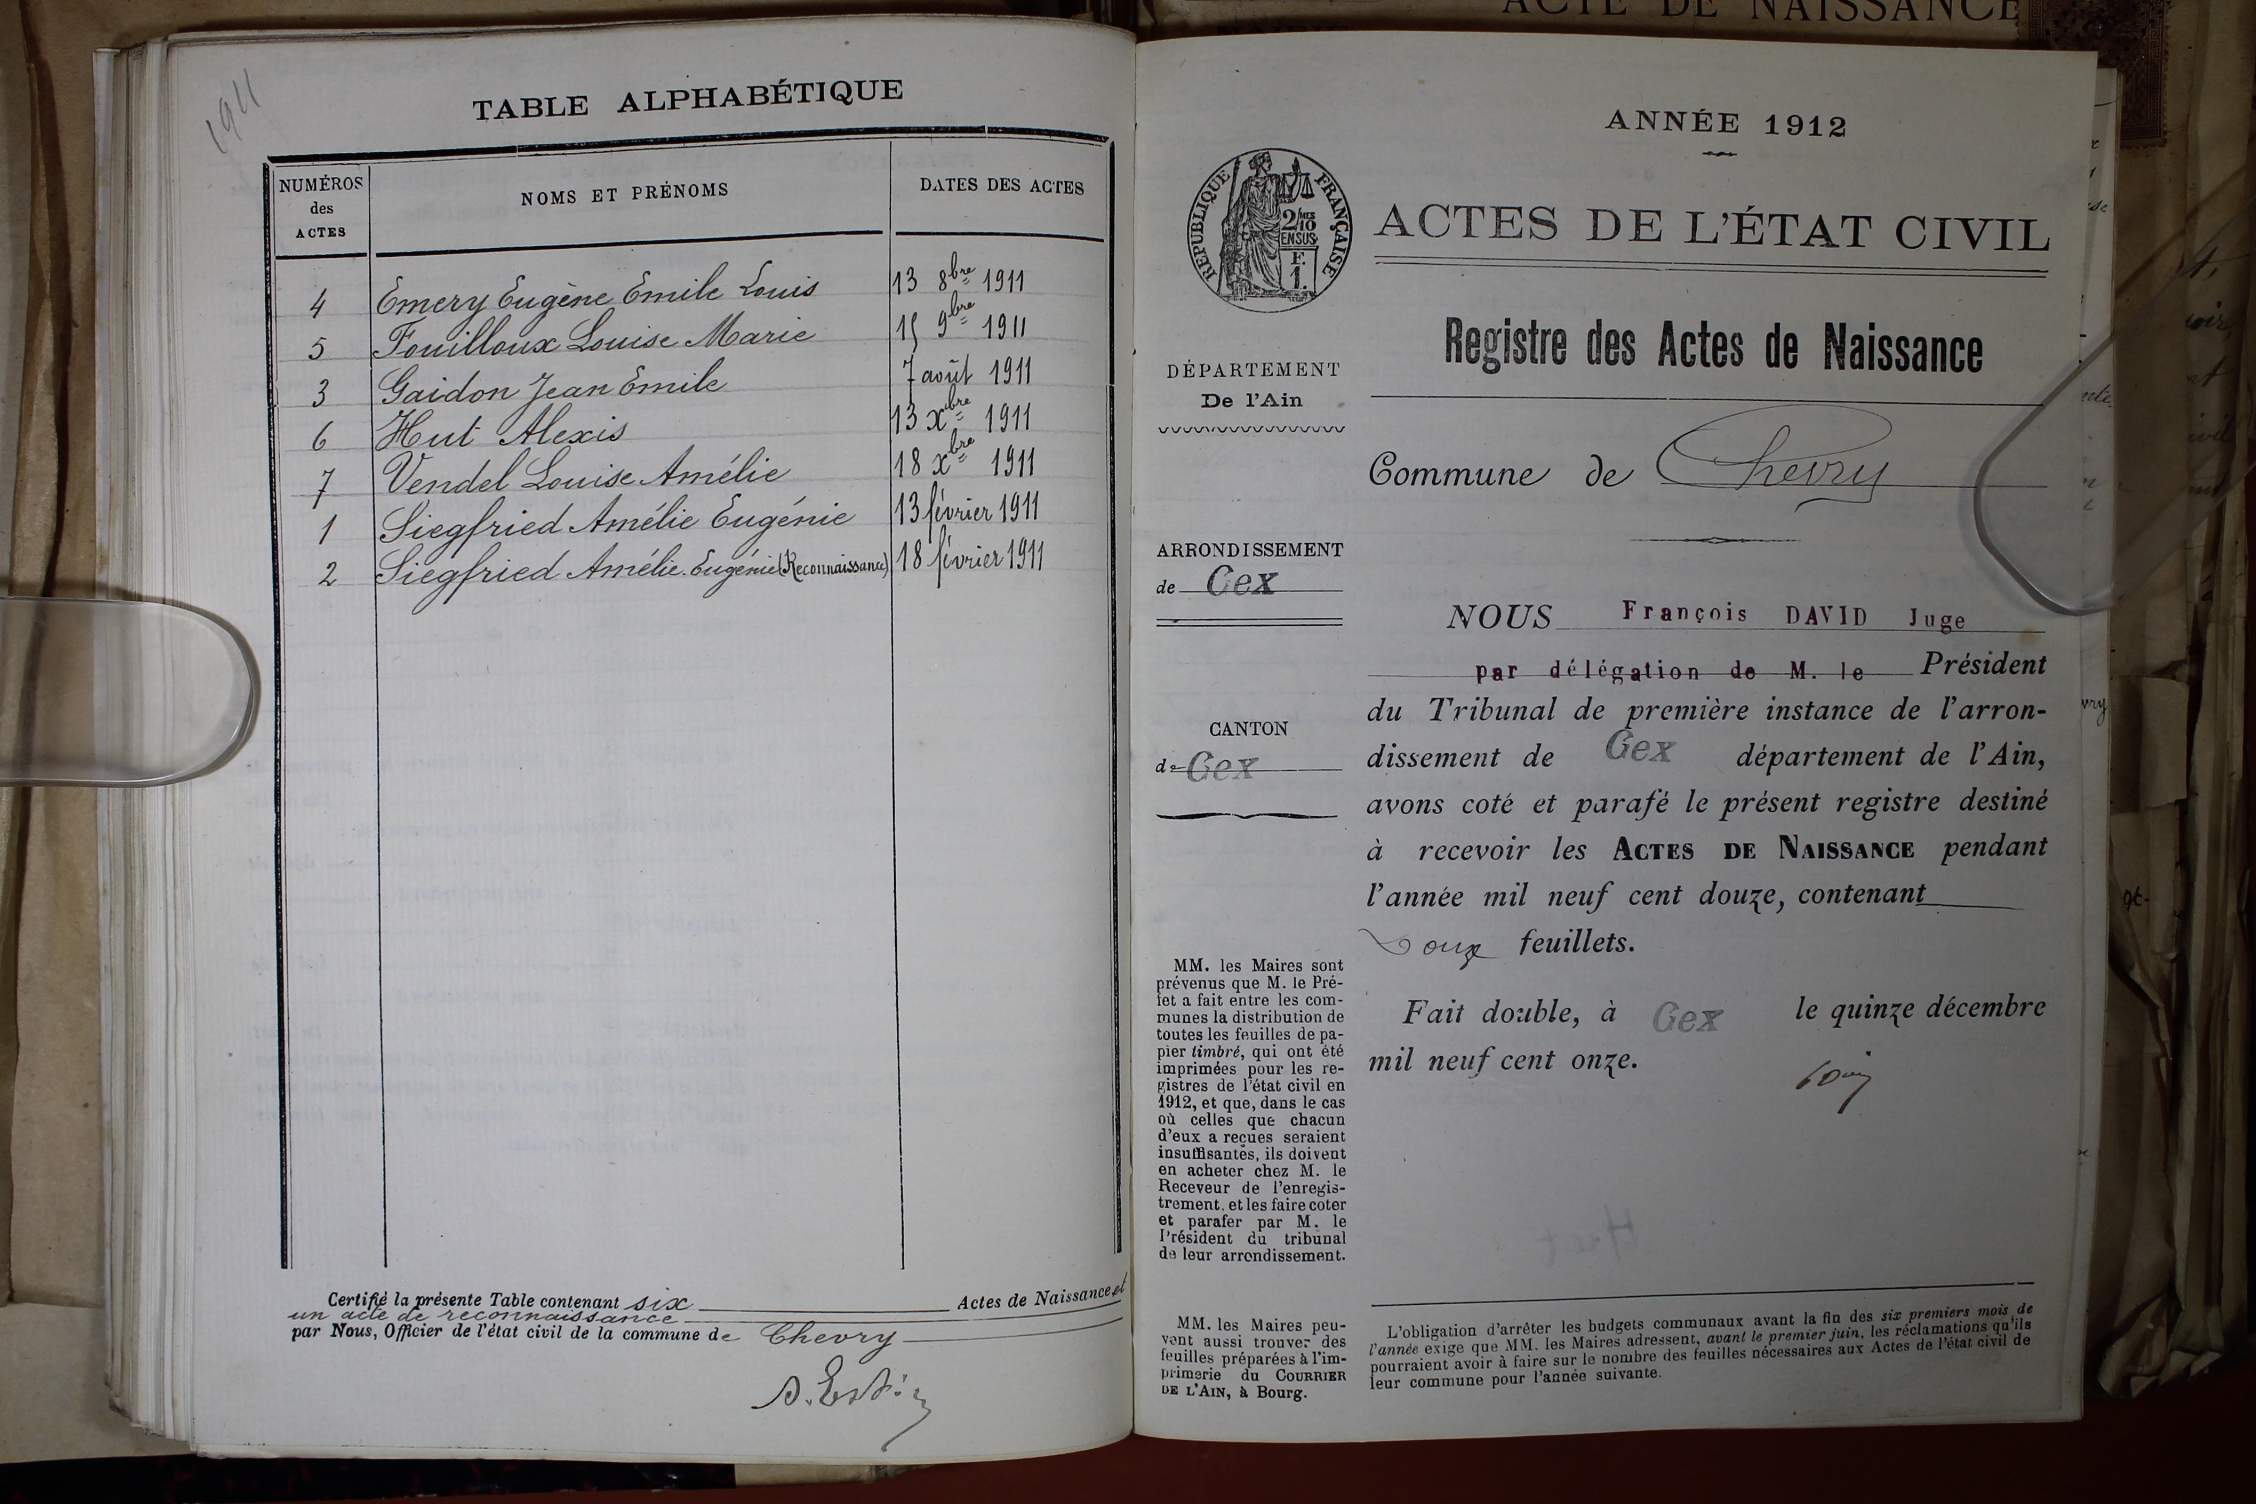 1911
TABLE ALPHABÉTIQUE
NUMÉROS
des
ACTES
NOMS ET PRÉNOMS
DATES DES ACTES
4 Emery Eugène Emile Louis 13 8bre 1911
5 Fouilloux Louise Marie 15 9bre 1911
3 Gaidon Jean Emile 7 août 1911
6 Hut Alexis 13 xbre 1911
7 Vendel Louise Amélie 18 xbre 1911
1 Siegfried Amélie Eugénie 13 février 1911
2 Siegfried Amélie Eugénie (Reconnaissance) 18 février 1911
Certifié la présente Table contenant six Actes de Naissance et
un acte de reconnaissance
par Nous, Officier de l'état civil de la commune de Chevry
ACTE DE NAISSANCE
ANNÉE 1912
RÉPUBLIQUE FRANÇAISE
2/10MES
EN SUS
F.
1.
ACTES DE L'ÉTAT CIVIL
Registre des Actes de Naissance
DÉPARTEMENT
De l'Ain
Commune de Chevry
ARRONDISSEMENT
de Gex
CANTON
de Gex
NOUS François DAVID Juge
par délégation de M. le Président
du Tribunal de première instance de l'arron-
dissement de Gex département de l'Ain,
avons coté et parafé le présent registre destiné
à recevoir les ACTES DE NAISSANCE pendant
l'année mil neuf cent douze, contenant
Douze feuillets.
Fait double, à Gex le quinze décembre
mil neuf cent onze.
MM. les Maires sont
prévenus que M. le Pré-
fet a fait entre les com-
munes la distribution de
toutes les feuilles de pa-
pier timbré, qui ont été
imprimées pour les re-
gistres de l'état civil en
1912, et que, dans le cas
où celles que chacun
d'eux a reçues seraient
insuffisantes, ils doivent
en acheter chez M. le
Receveur de l'enregis-
trement, et les faire coter
et parafer par M. le
Président du tribunal
de leur arrondissement.
MM. les Maires peu-
vent aussi trouver des
feuilles préparées à l'im-
primerie du COURRIER
DE L'AIN, à Bourg.
L'obligation d'arrêter les budgets communaux avant la fin des six premiers mois de
l'année exige que MM. les Maires adressent, avant le premier juin, les réclamations qu'ils
pourraient avoir à faire sur le nombre des feuilles nécessaires aux Actes de l'état civil de
leur commune pour l'année suivante.